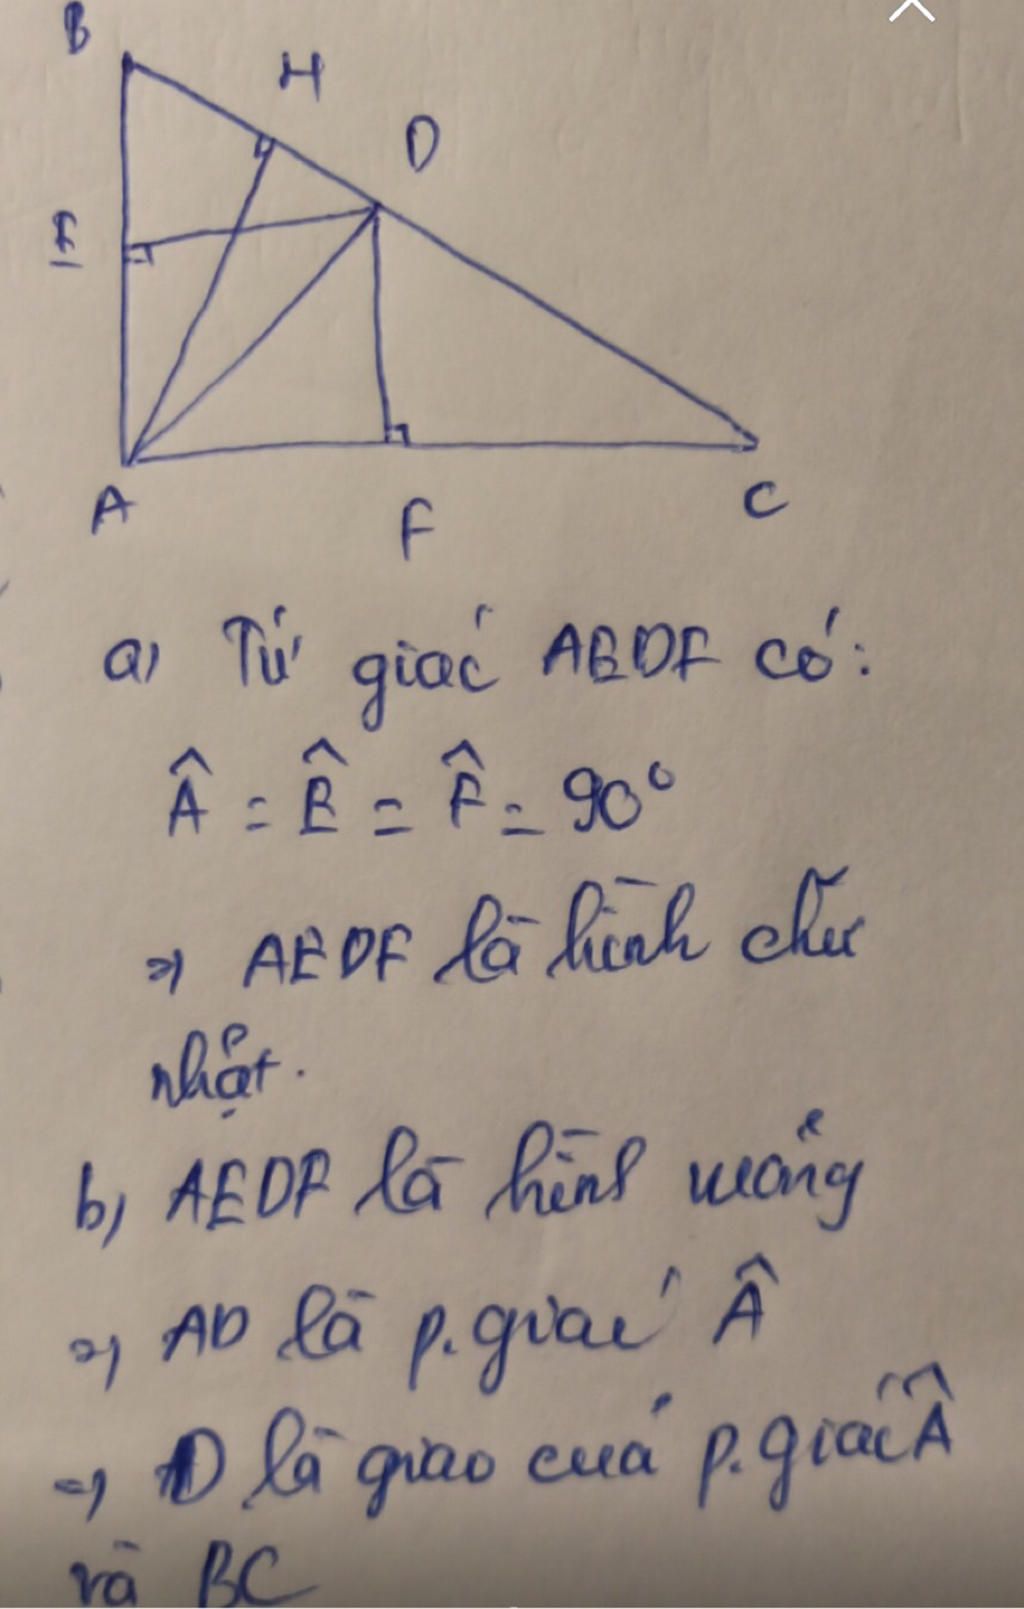 B
H
D
E
A
F
C
a) Tứ giác AEDF có:
Â = Ê = F̂ = 90°
=> AEDF là hình chữ
nhật.
b) AEDF là hình vuông
=> AD là p.giác Â
=> D là giao của p.giác Â
và BC